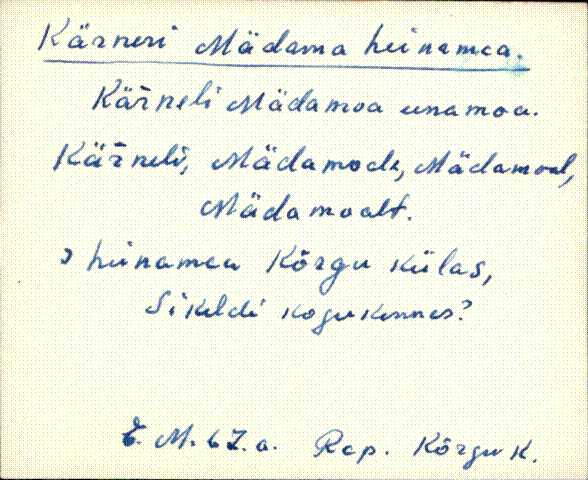 Kärneri Mädama heinamaa.
Kärneli Mädamoa einamoa.
Kärneli, Mädamode, Mädamoal,
Mädamoalt.
heinamaa Kõrgu külas,
Sikeldi kogukonnas?
E. M. 67. a. Rap. Kõrgu k.